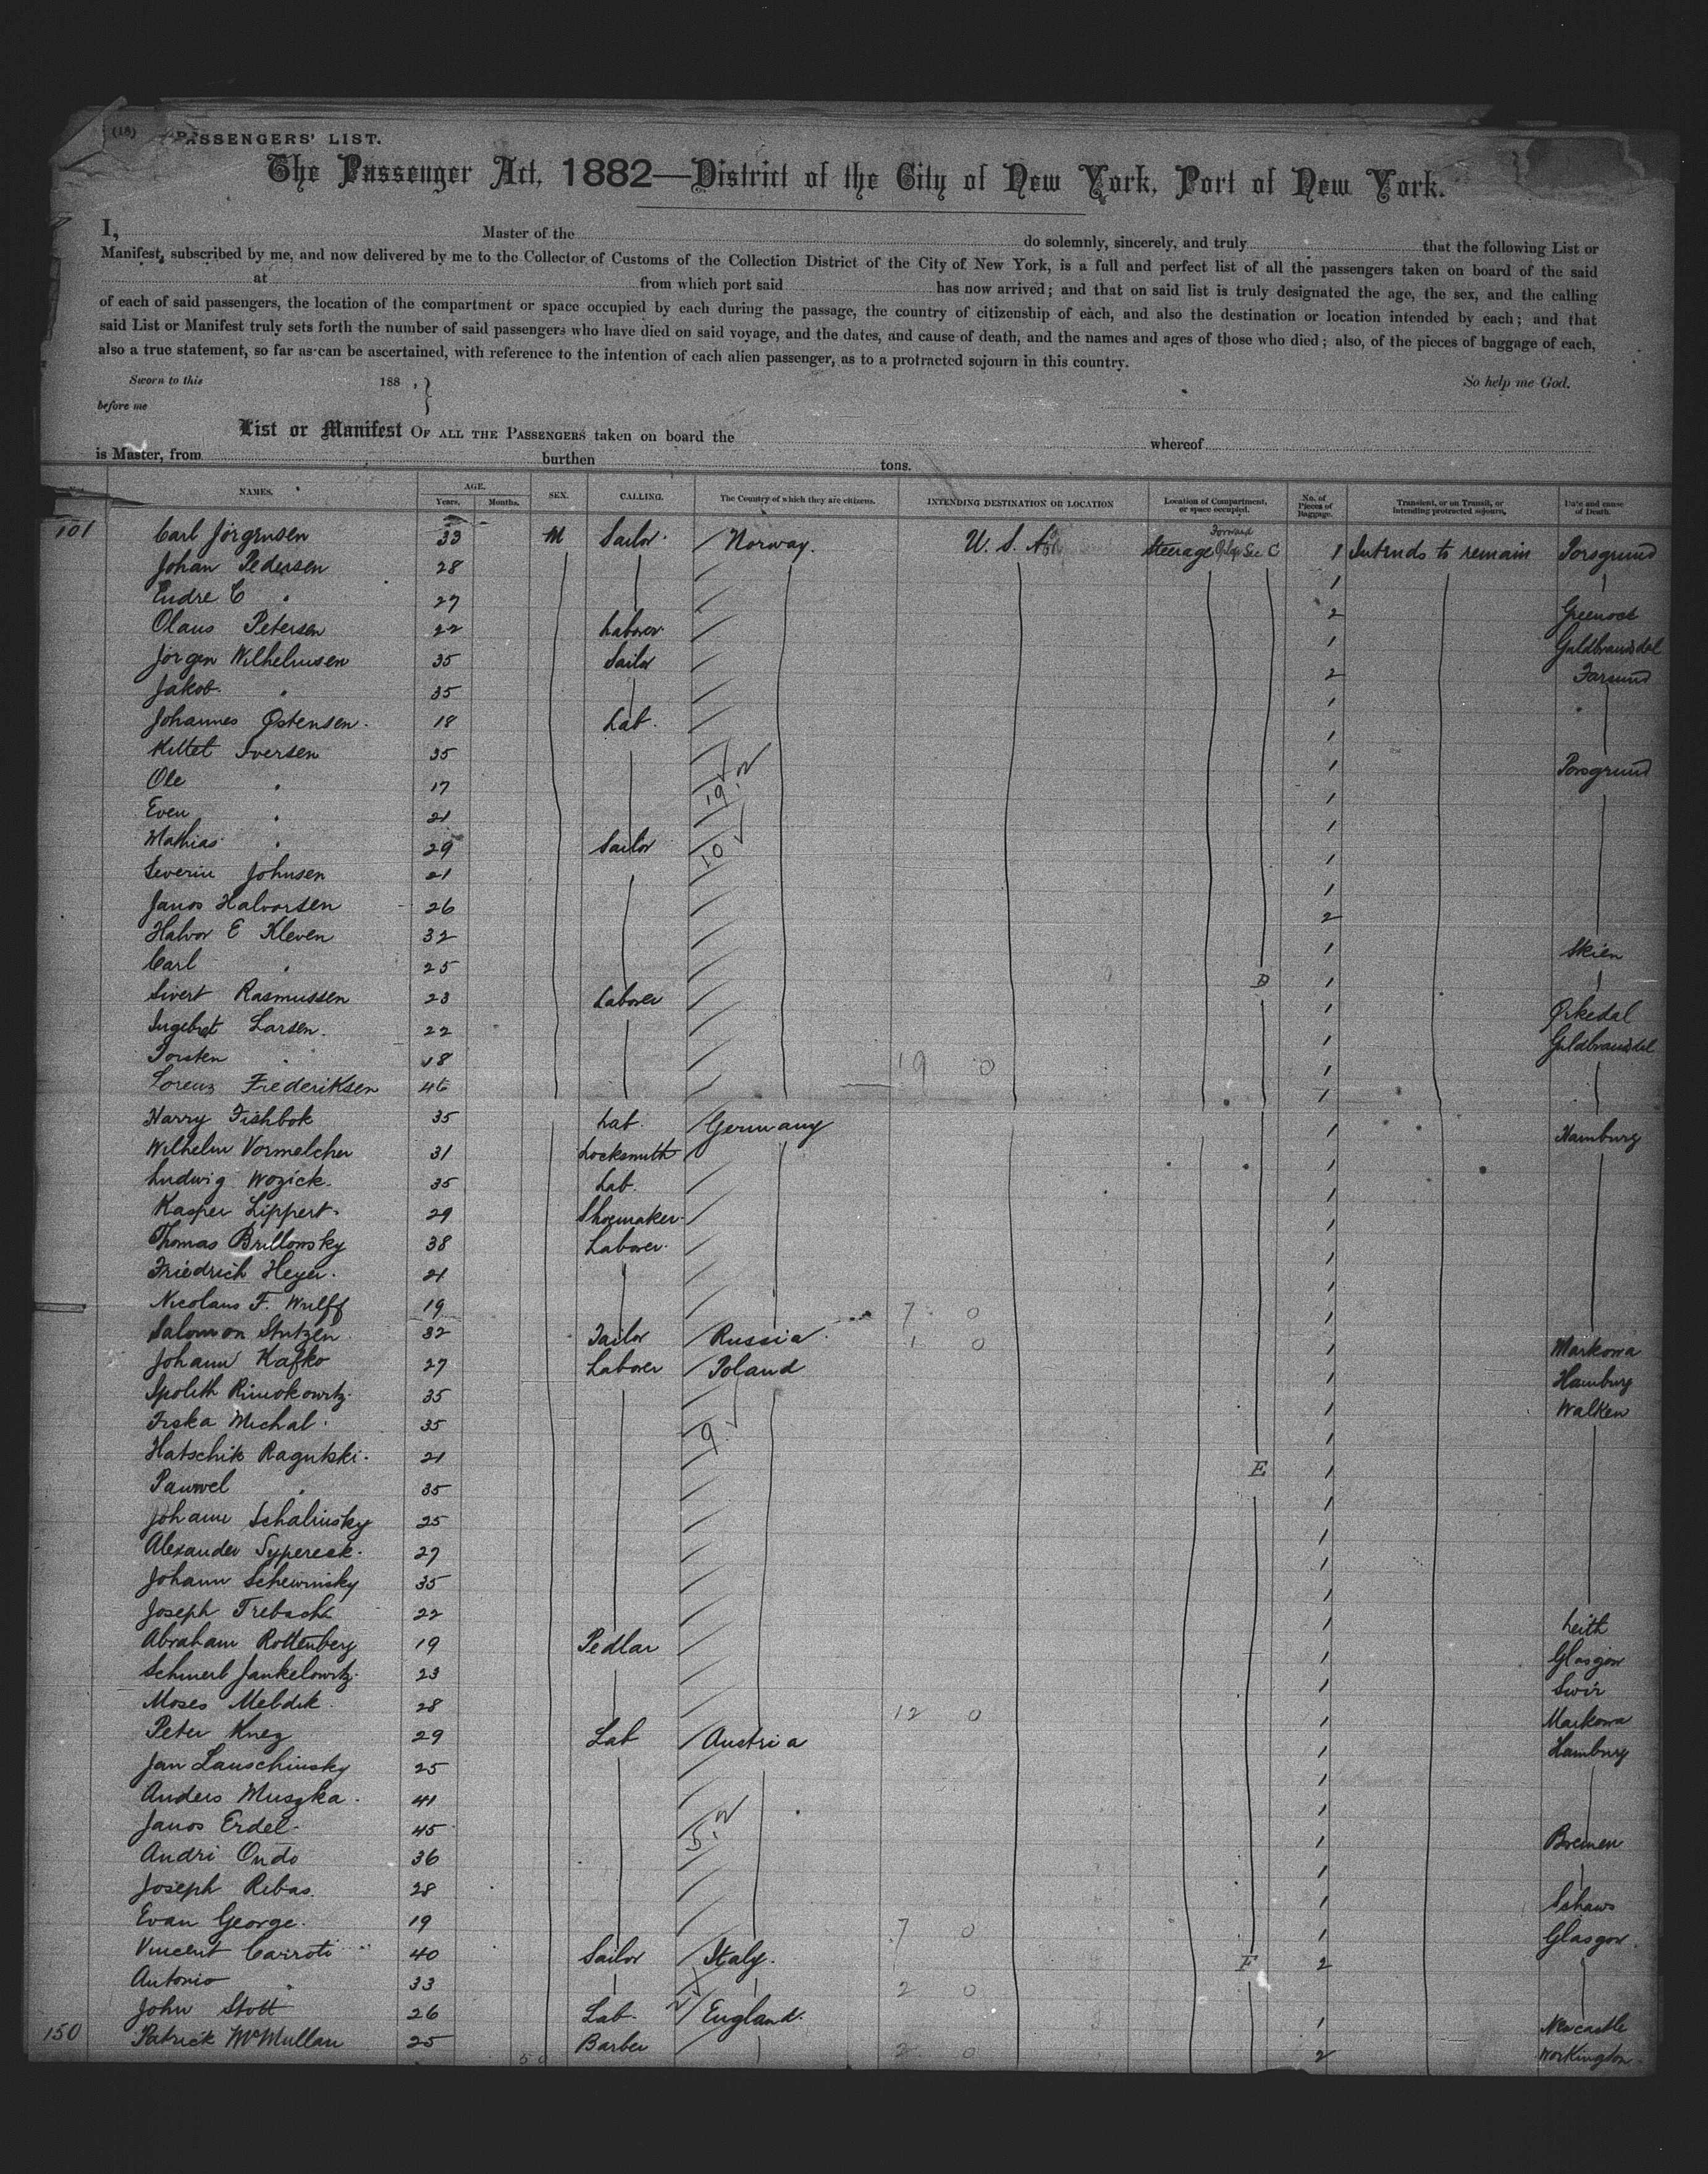 (18)
PASSENGERS' LIST.
The Passenger Act, 1882—District of the City of New York, Port of New York.
I, Master of the do solemnly, sincerely, and truly that the following List or
Manifest, subscribed by me, and now delivered by me to the Collector of Customs of the Collection District of the City of New York, is a full and perfect list of all the passengers taken on board of the said
at from which port said has now arrived; and that on said list is truly designated the age, the sex, and the calling
of each of said passengers, the location of the compartment or space occupied by each during the passage, the country of citizenship of each, and also the destination or location intended by each; and that
said List or Manifest truly sets forth the number of said passengers who have died on said voyage, and the dates, and cause of death, and the names and ages of those who died; also, of the pieces of baggage of each,
also a true statement, so far as can be ascertained, with reference to the intention of each alien passenger, as to a protracted sojourn in this country.
Sworn to this 188 , } So help me God.
before me
List or Manifest OF ALL THE PASSENGERS taken on board the whereof
is Master, from burthen tons.
NAMES. AGE. Years. Months. SEX. CALLING. The Country of which they are citizens. INTENDING DESTINATION OR LOCATION Location of Compartment, or space occupied. No. of Pieces of Baggage. Transient, or on Transit, or intending protracted sojourn. Date and cause of Death.
101 Carl Jörgensen 33 M Sailor Norway. U. S. A. Steerage Forward Sec C 1 Intends to remain Porsgrund
Johan Pedersen 28 1
Endre C " 27 2 Greenock
Olaus Petersen 22 Laborer 1 Guldbransdal
Jörgen Wilhelmsen 35 Sailor 2 Farsund
Jakob " 35 1
Johannes Østensen 18 Lab. 1
Kittet Iversen 35 1 Porsgrund
Ole " 17 1
Even " 21 1
Mathias " 29 Sailor 1
Severin Johnsen 21 1
Janos Halvorsen 26 2
Halvor E Kleven 32 1 Skien
Carl " 25 D 1
Sivert Rasmussen 23 Laborer 1 Orkedal
Ingebret Larsen 22 1 Guldbransdal
Torsten " 18 19 0 1
Lorenz Frederiksen 46 1
Harry Fishbok 35 Lab. Germany 1 Hamburg
Wilhelm Vormelcher 31 Locksmith 1
Ludwig Wozick 35 Lab. 1
Kasper Lippert 29 Shoemaker 1
Thomas Brillowsky 38 Laborer 1
Friedrich Heyer 21 1
Nicolaus F. Wulff 19 7 0 1
Salomon Stutzen 32 Tailor Russia 1 0 1 Markowa
Johann Kafko 27 Laborer Poland 1 Hamburg
Rimokowitz 35 1 Walken
Friska Michal 35 9 1
Hatschik Ragutski 21 E 1
Pauwel " 35 1
Johann Schalinsky 25 1
Alexander Sypereck 27 1
Johann Schewinsky 35 1
Joseph Trebach 22 1 Leith
Abraham Rottenberg 19 Pedlar 1 Glasgow
Schmerl Jankelowitz 23 1 Swir
Moses Mebdik 28 12 0 1 Markowa
Peter Knez 29 Lab Austria 1 Hamburg
Jan Lauschinsky 25 1
Anders Muszka 41 1
Janos Erdel 45 1 Bremen
Andri Ondo 36 1
Joseph Ribas 28 1 Schaws
Evan George 19 7 0 1 Glasgow
Vincent Carroti 40 Sailor Italy. F 2
Antonio " 33 2 0
John Stott 26 Lab. England. 1 Newcastle
150 Patrick McMullan 25 Barber 2 0 2 Workington